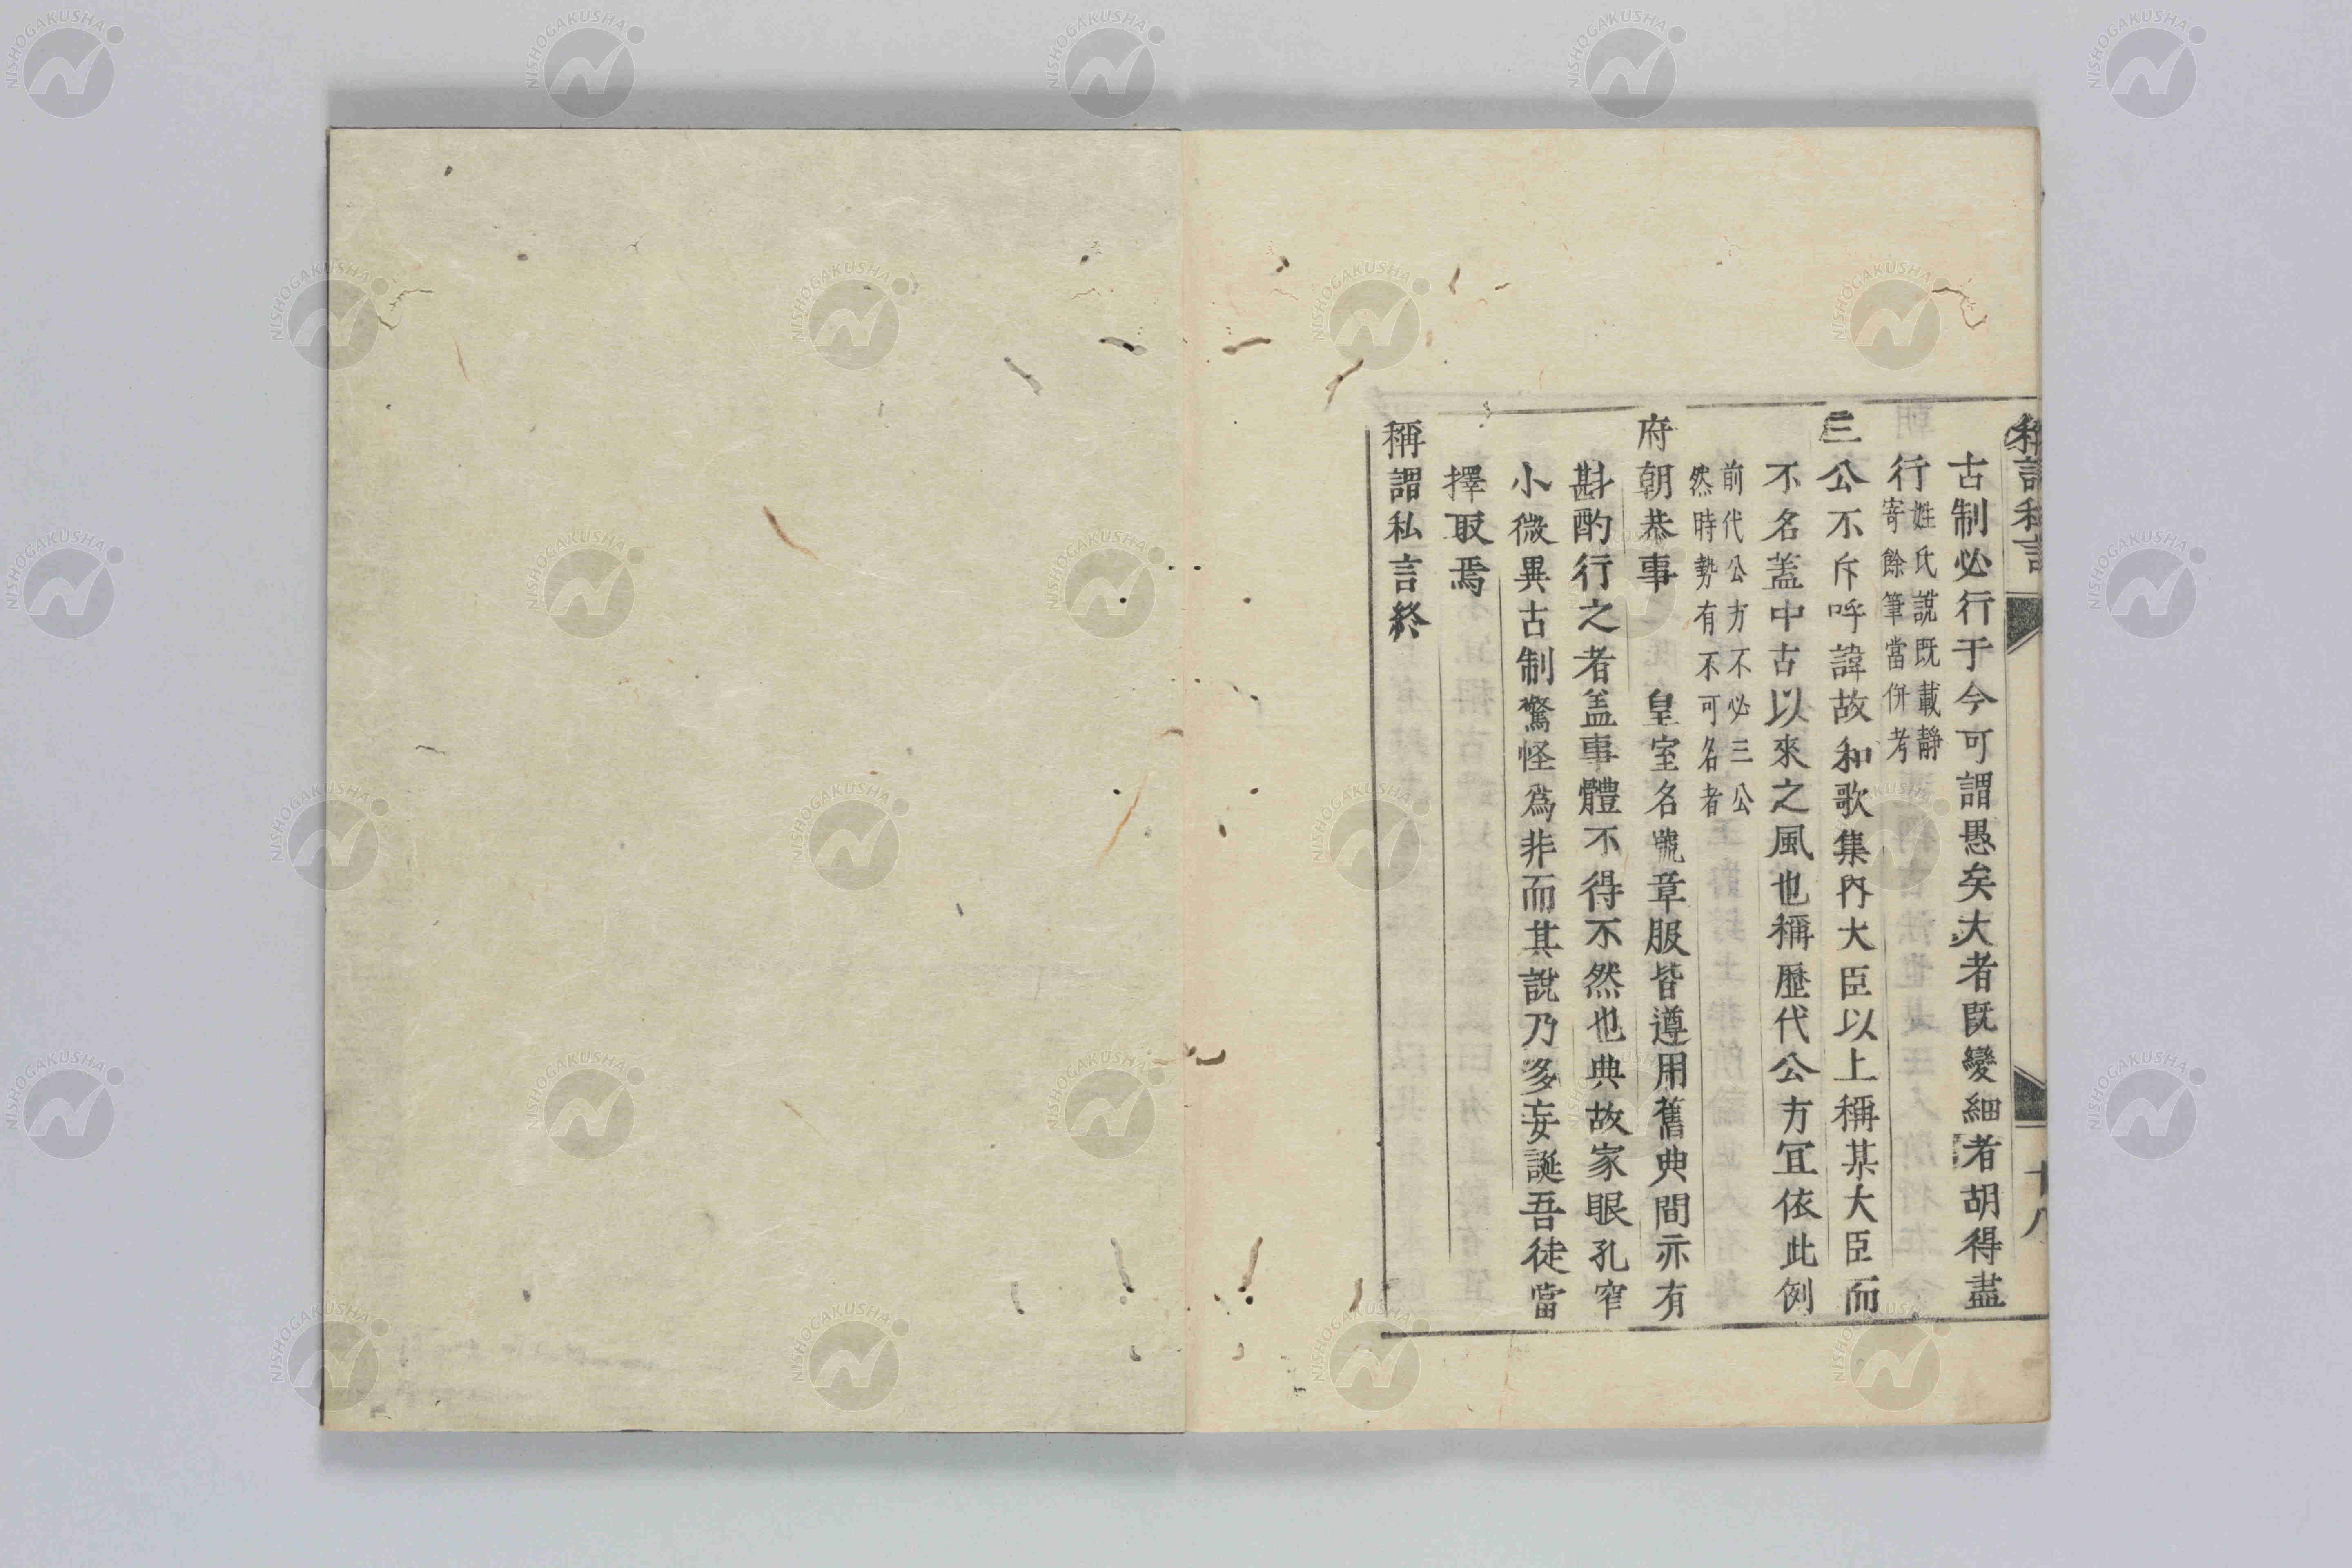 稱謂私言
十八
古制必行于今可謂愚矣大者既變細者胡得盡
行姓氏說既載靜
寄餘筆當併考
三公不斥呼諱故和歌集內大臣以上稱某大臣而
不名蓋中古以來之風也稱歷代公方宜依此例
前代公方不必三公
然時勢有不可名者
府朝恭事　　皇室名號章服皆遵用舊典間亦有
斟酌行之者盖事體不得不然也典故家眼孔窄
小微異古制驚怪爲非而其說乃多妄誕吾徒當
擇取焉
稱謂私言終
NISHOGAKUSHA